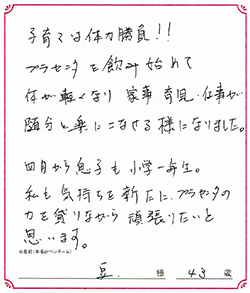 子育ては体力勝負!!
プラセンタを飲み始めて
体が軽くなり 家事 育児、仕事が
随分と楽にこなせる様になりました。
四月から息子も小学一年生。
私も気持ちを新たに、プラセンタの
力を貸りながら 頑張りたいと
思います。
お名前(本名orペンネーム)
豆. 様 43 歳